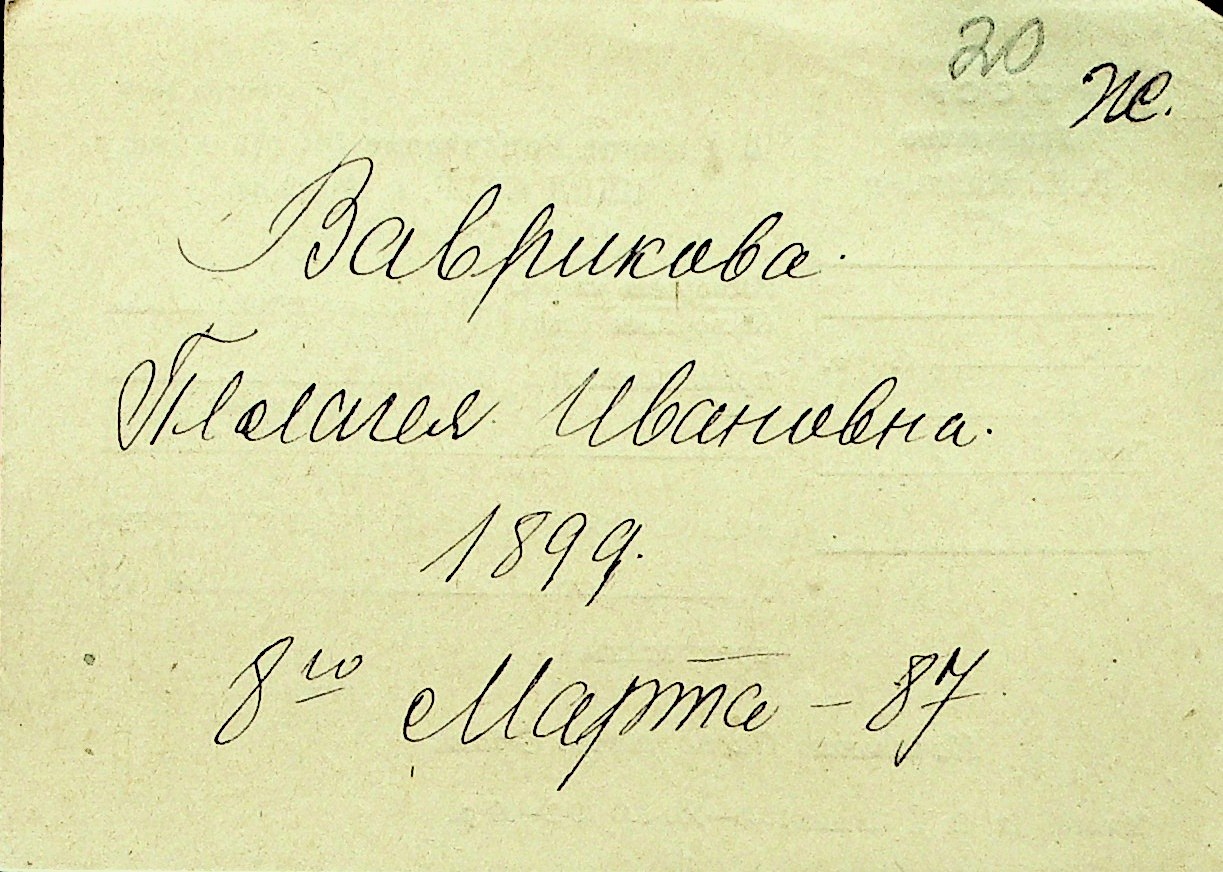 20
Ж.
Ваврикова.
Пелагея Ивановна.
1899.
8го Марта – 87